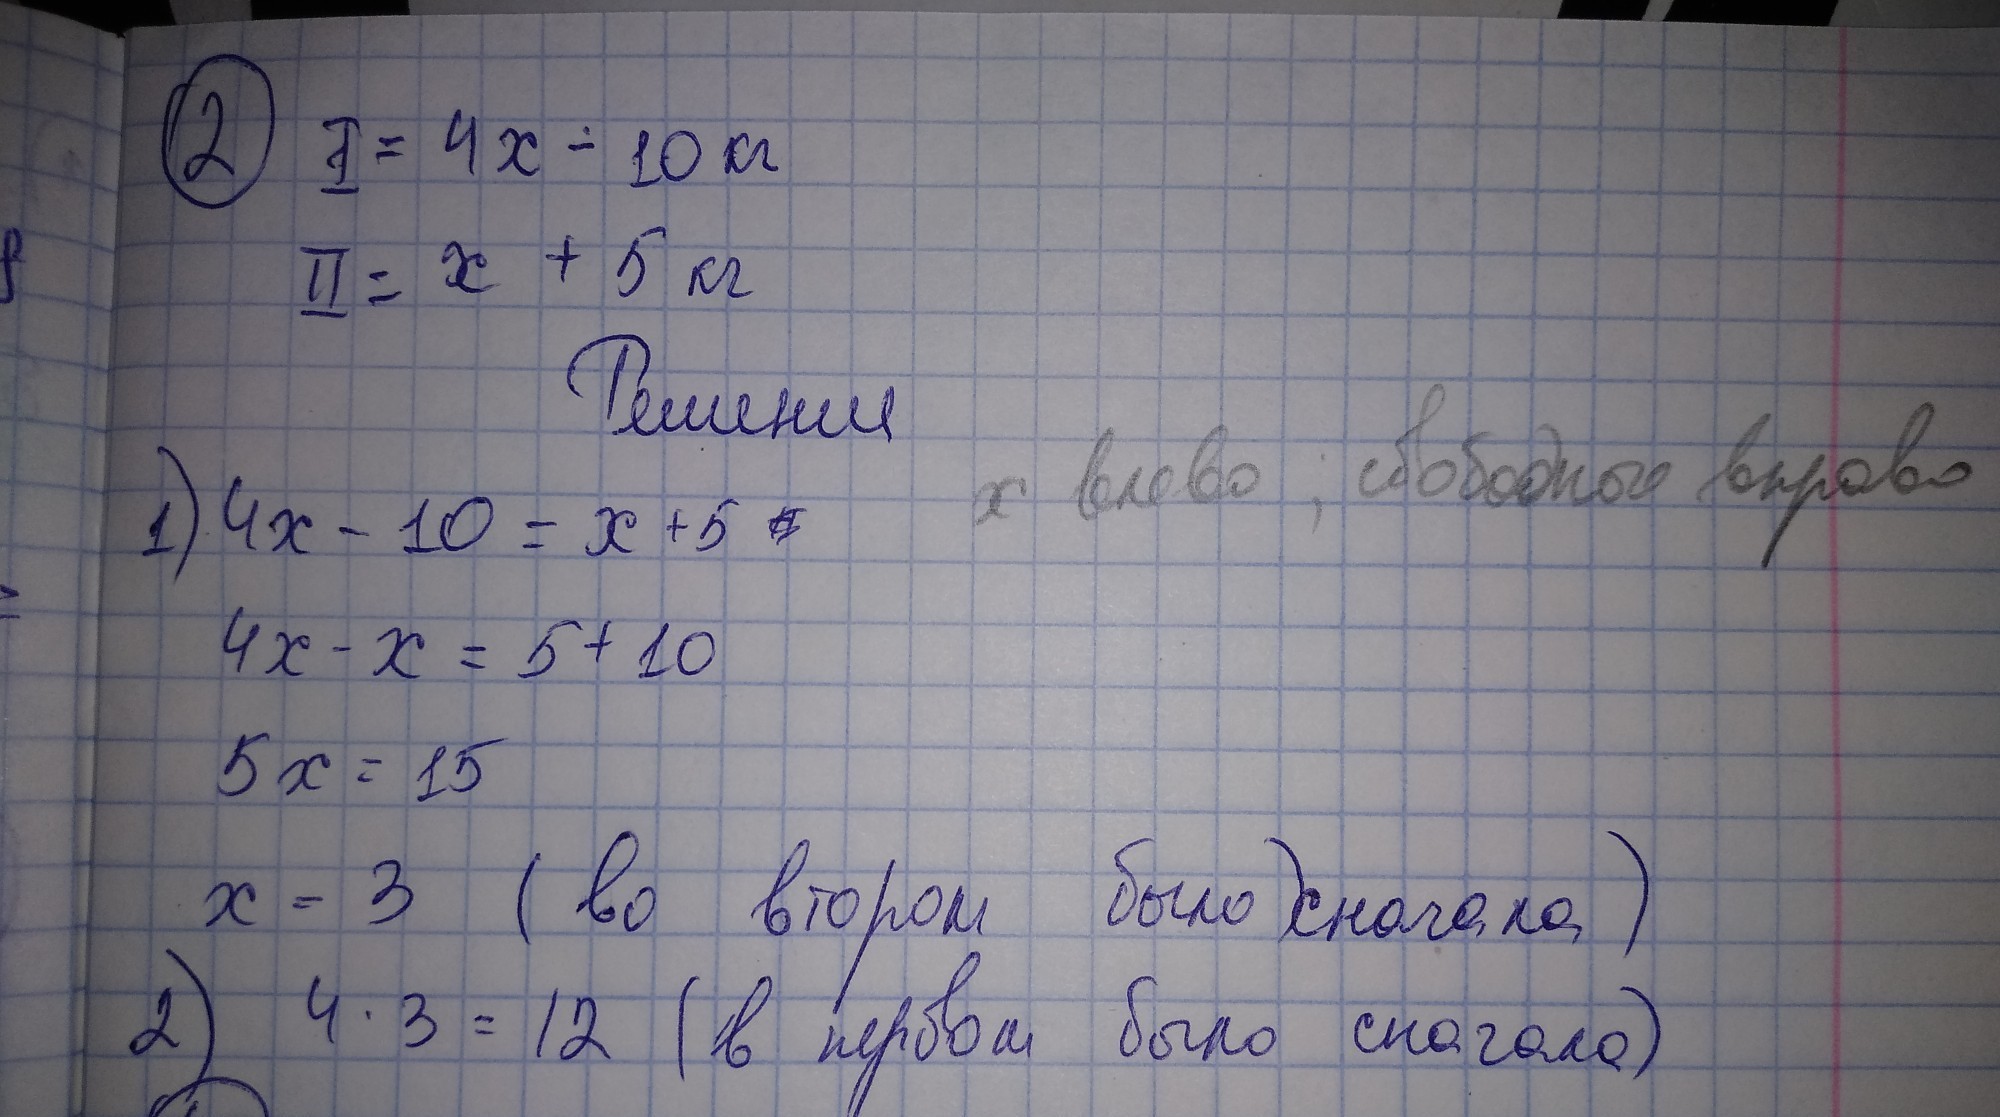 2 I = 4x - 10 кг
II = x + 5 кг
Решении
x влево ; свободное вправо
1) 4x - 10 = x + 5
4x - x = 5 + 10
5x = 15
x = 3 ( во втором было сначала )
2) 4 · 3 = 12 ( в первом было сначала )